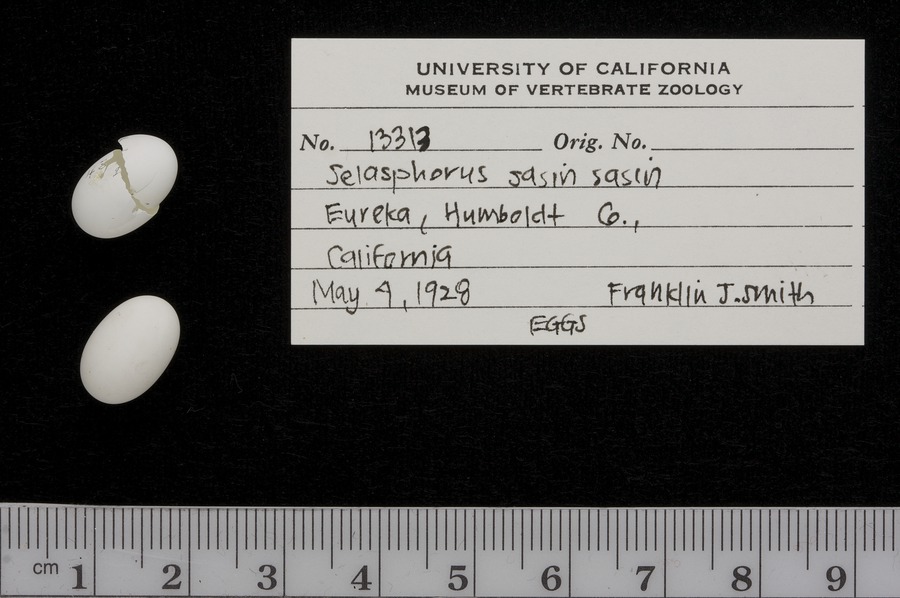 UNIVERSITY OF CALIFORNIA
MUSEUM OF VERTEBRATE ZOOLOGY
No. 13313 Orig. No.
Selasphorus sasin sasin
Eureka, Humboldt Co.,
California
May 4, 1928 Franklin J. Smith
EGGS
cm 1 2 3 4 5 6 7 8 9